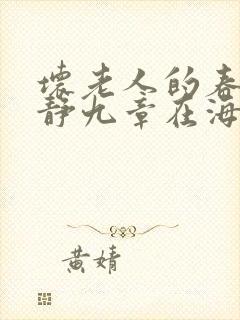 壞老人的春
靜九章在海
黃婧